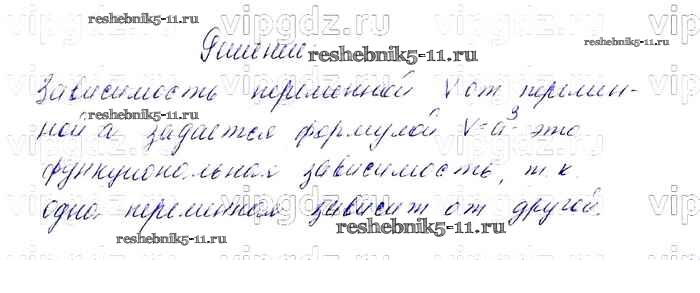 reshebnik5-11.ru
vipgdz.ru vipgdz.ru vipgdz.ru
reshebnik5-11.ru
Решение reshebnik5-11.ru
Зависимость переменной V от перемен-
reshebnik5-11.ru
ной a задается формулой V=a³- это
vipgdz.ru vipgdz.ru vipgdz.ru
функциональная зависимость, т.к.
одна переменная зависит от другой.
vipgdz.ru vipgdz.ru vipgdz.ru
reshebnik5-11.ru
reshebnik5-11.ru